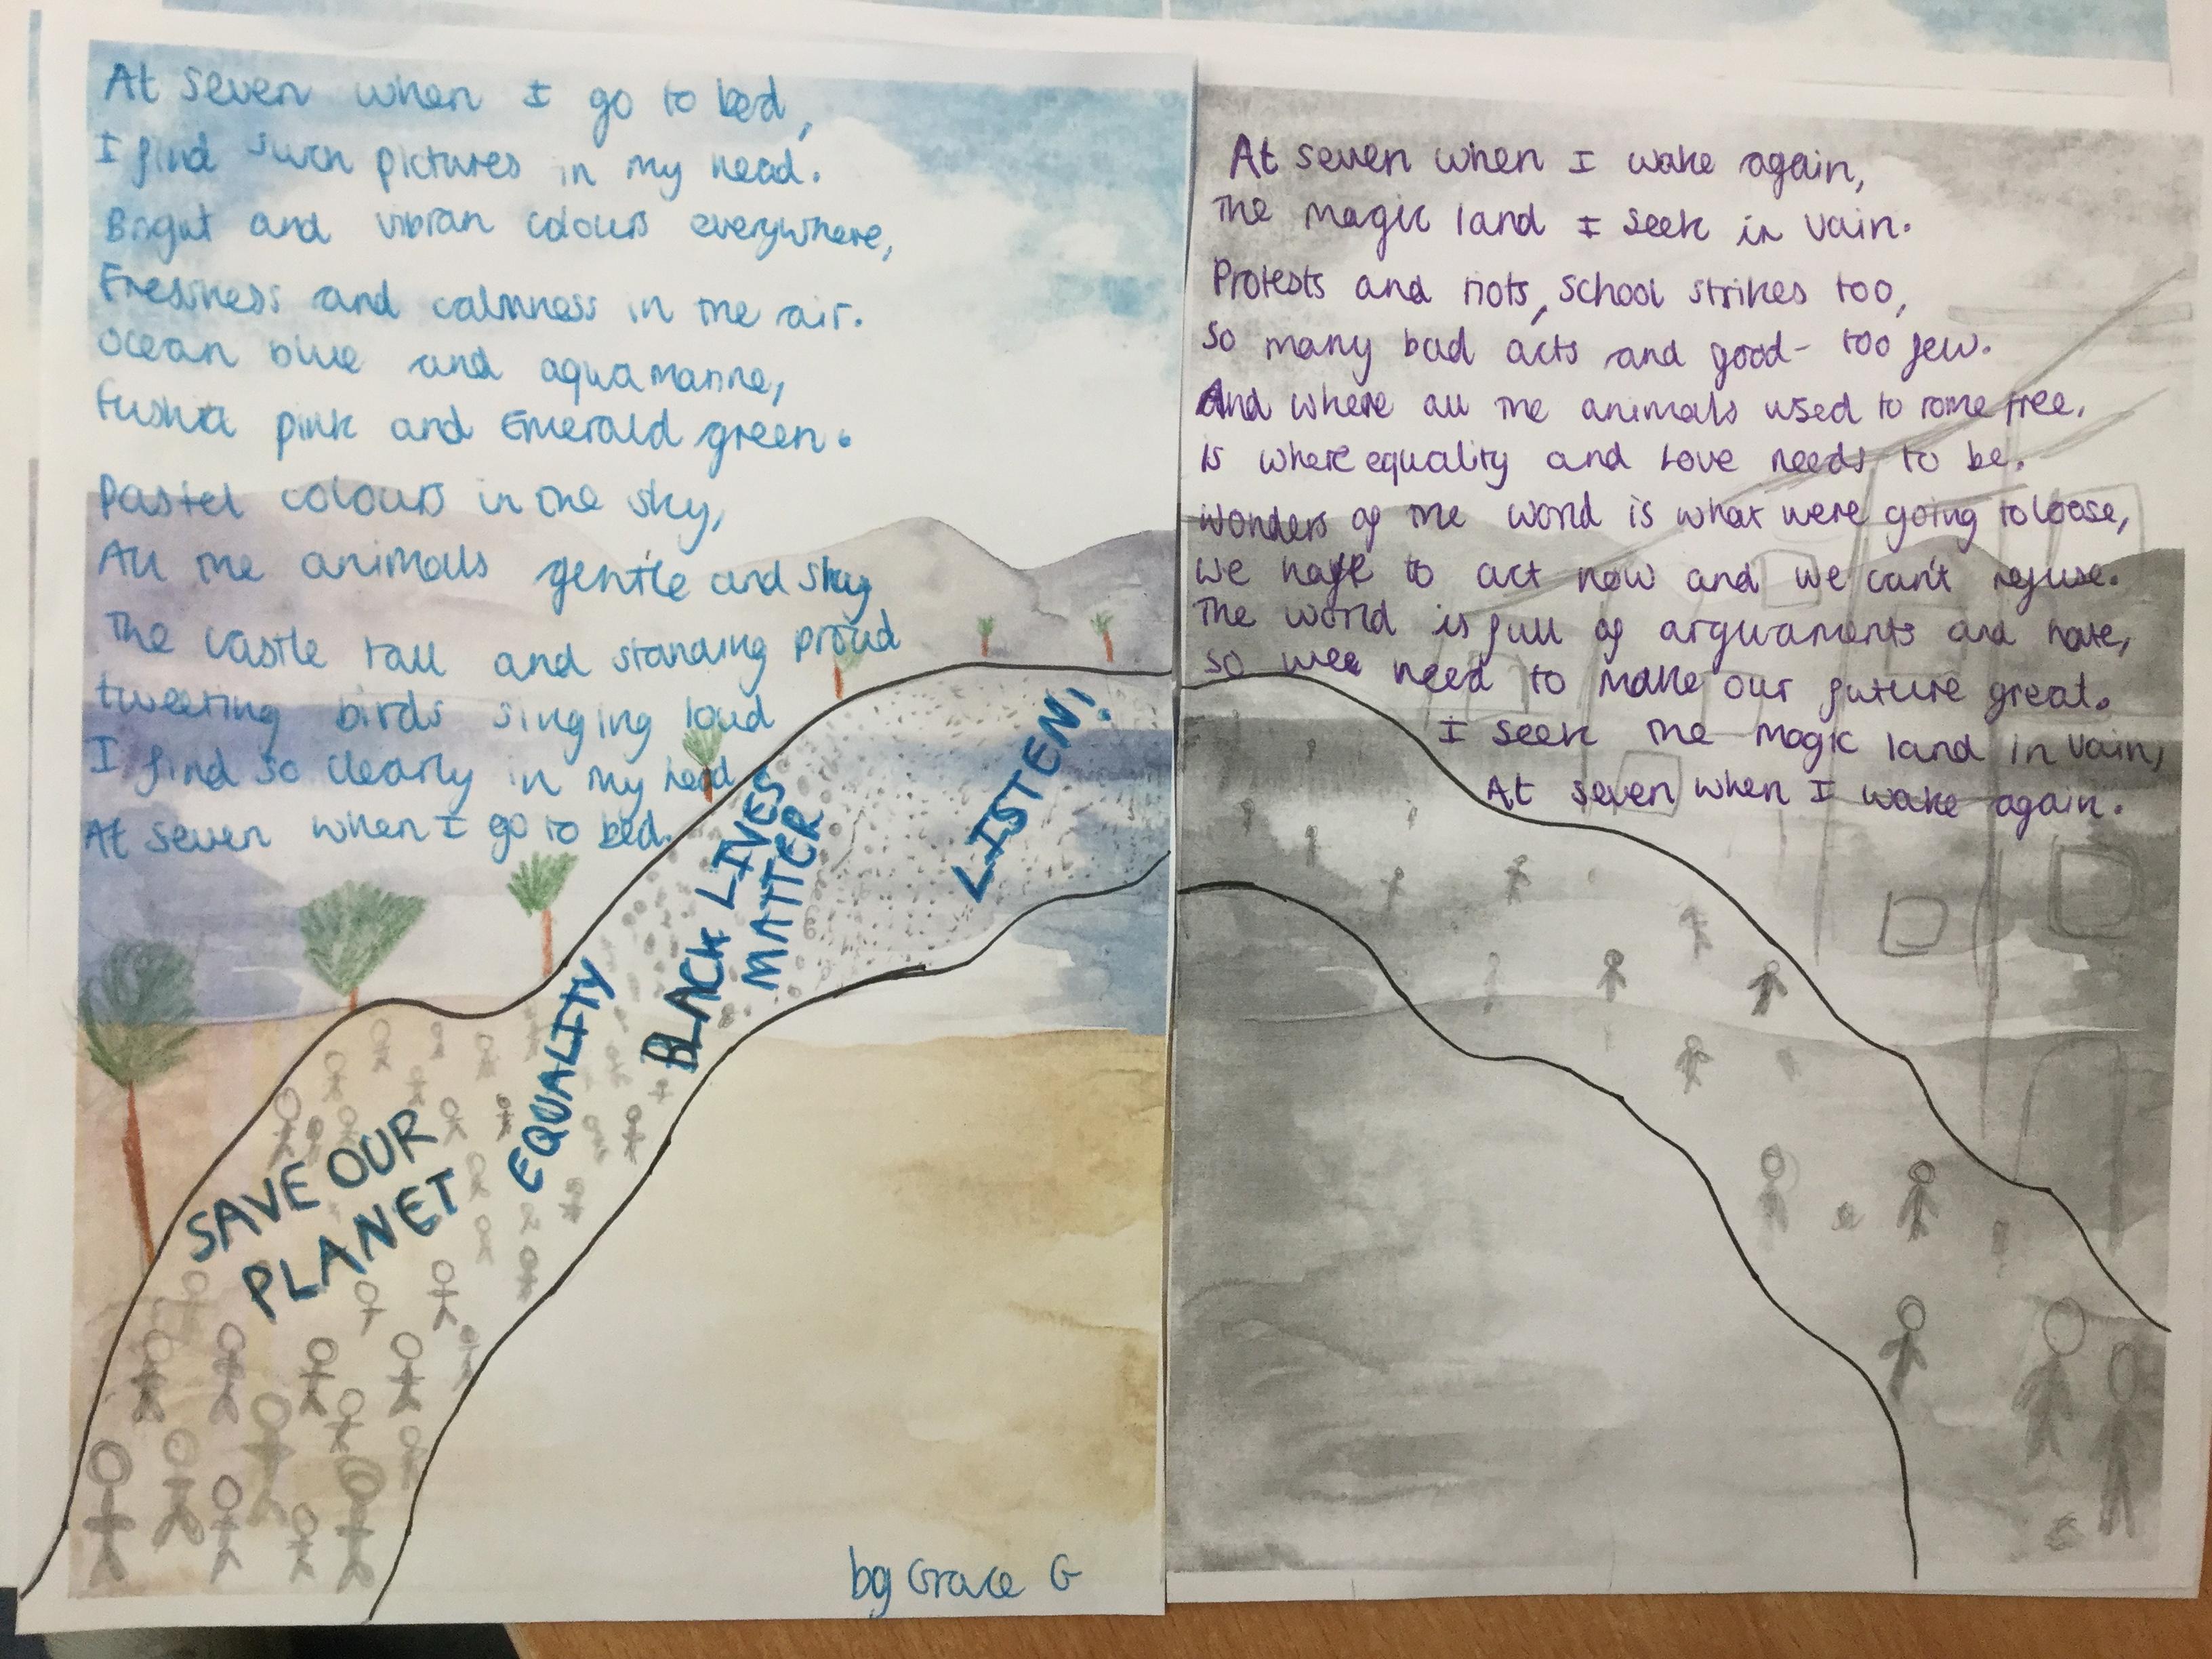 At seven when I go to bed,
I find such pictures in my head.
Bright and vibran colours everywhere,
Freshness and calmness in the air.
Ocean blue and aquamarine,
Fushia pink and Emerald green.
Pastel colours in the sky,
All the animals gentle and shy
The castle tall and standing proud
tweeting birds singing loud
I find so clearly in my head
At seven when I go to bed.
SAVE OUR
PLANET
EQUALITY
BLACK LIVES
MATTER
LISTEN!
by Grace G
At seven when I wake again,
The magic land I seek in vain.
Protests and riots, School strikes too,
So many bad acts and good- too few.
And where all the animals used to rome free,
is where equality and Love needs to be.
Wonders of the world is what were going to loose,
We have to act now and we can't refuse.
The world is full of arguaments and hate,
so wee need to make our future great.
I seek the magic land in vain,
At seven when I wake again.